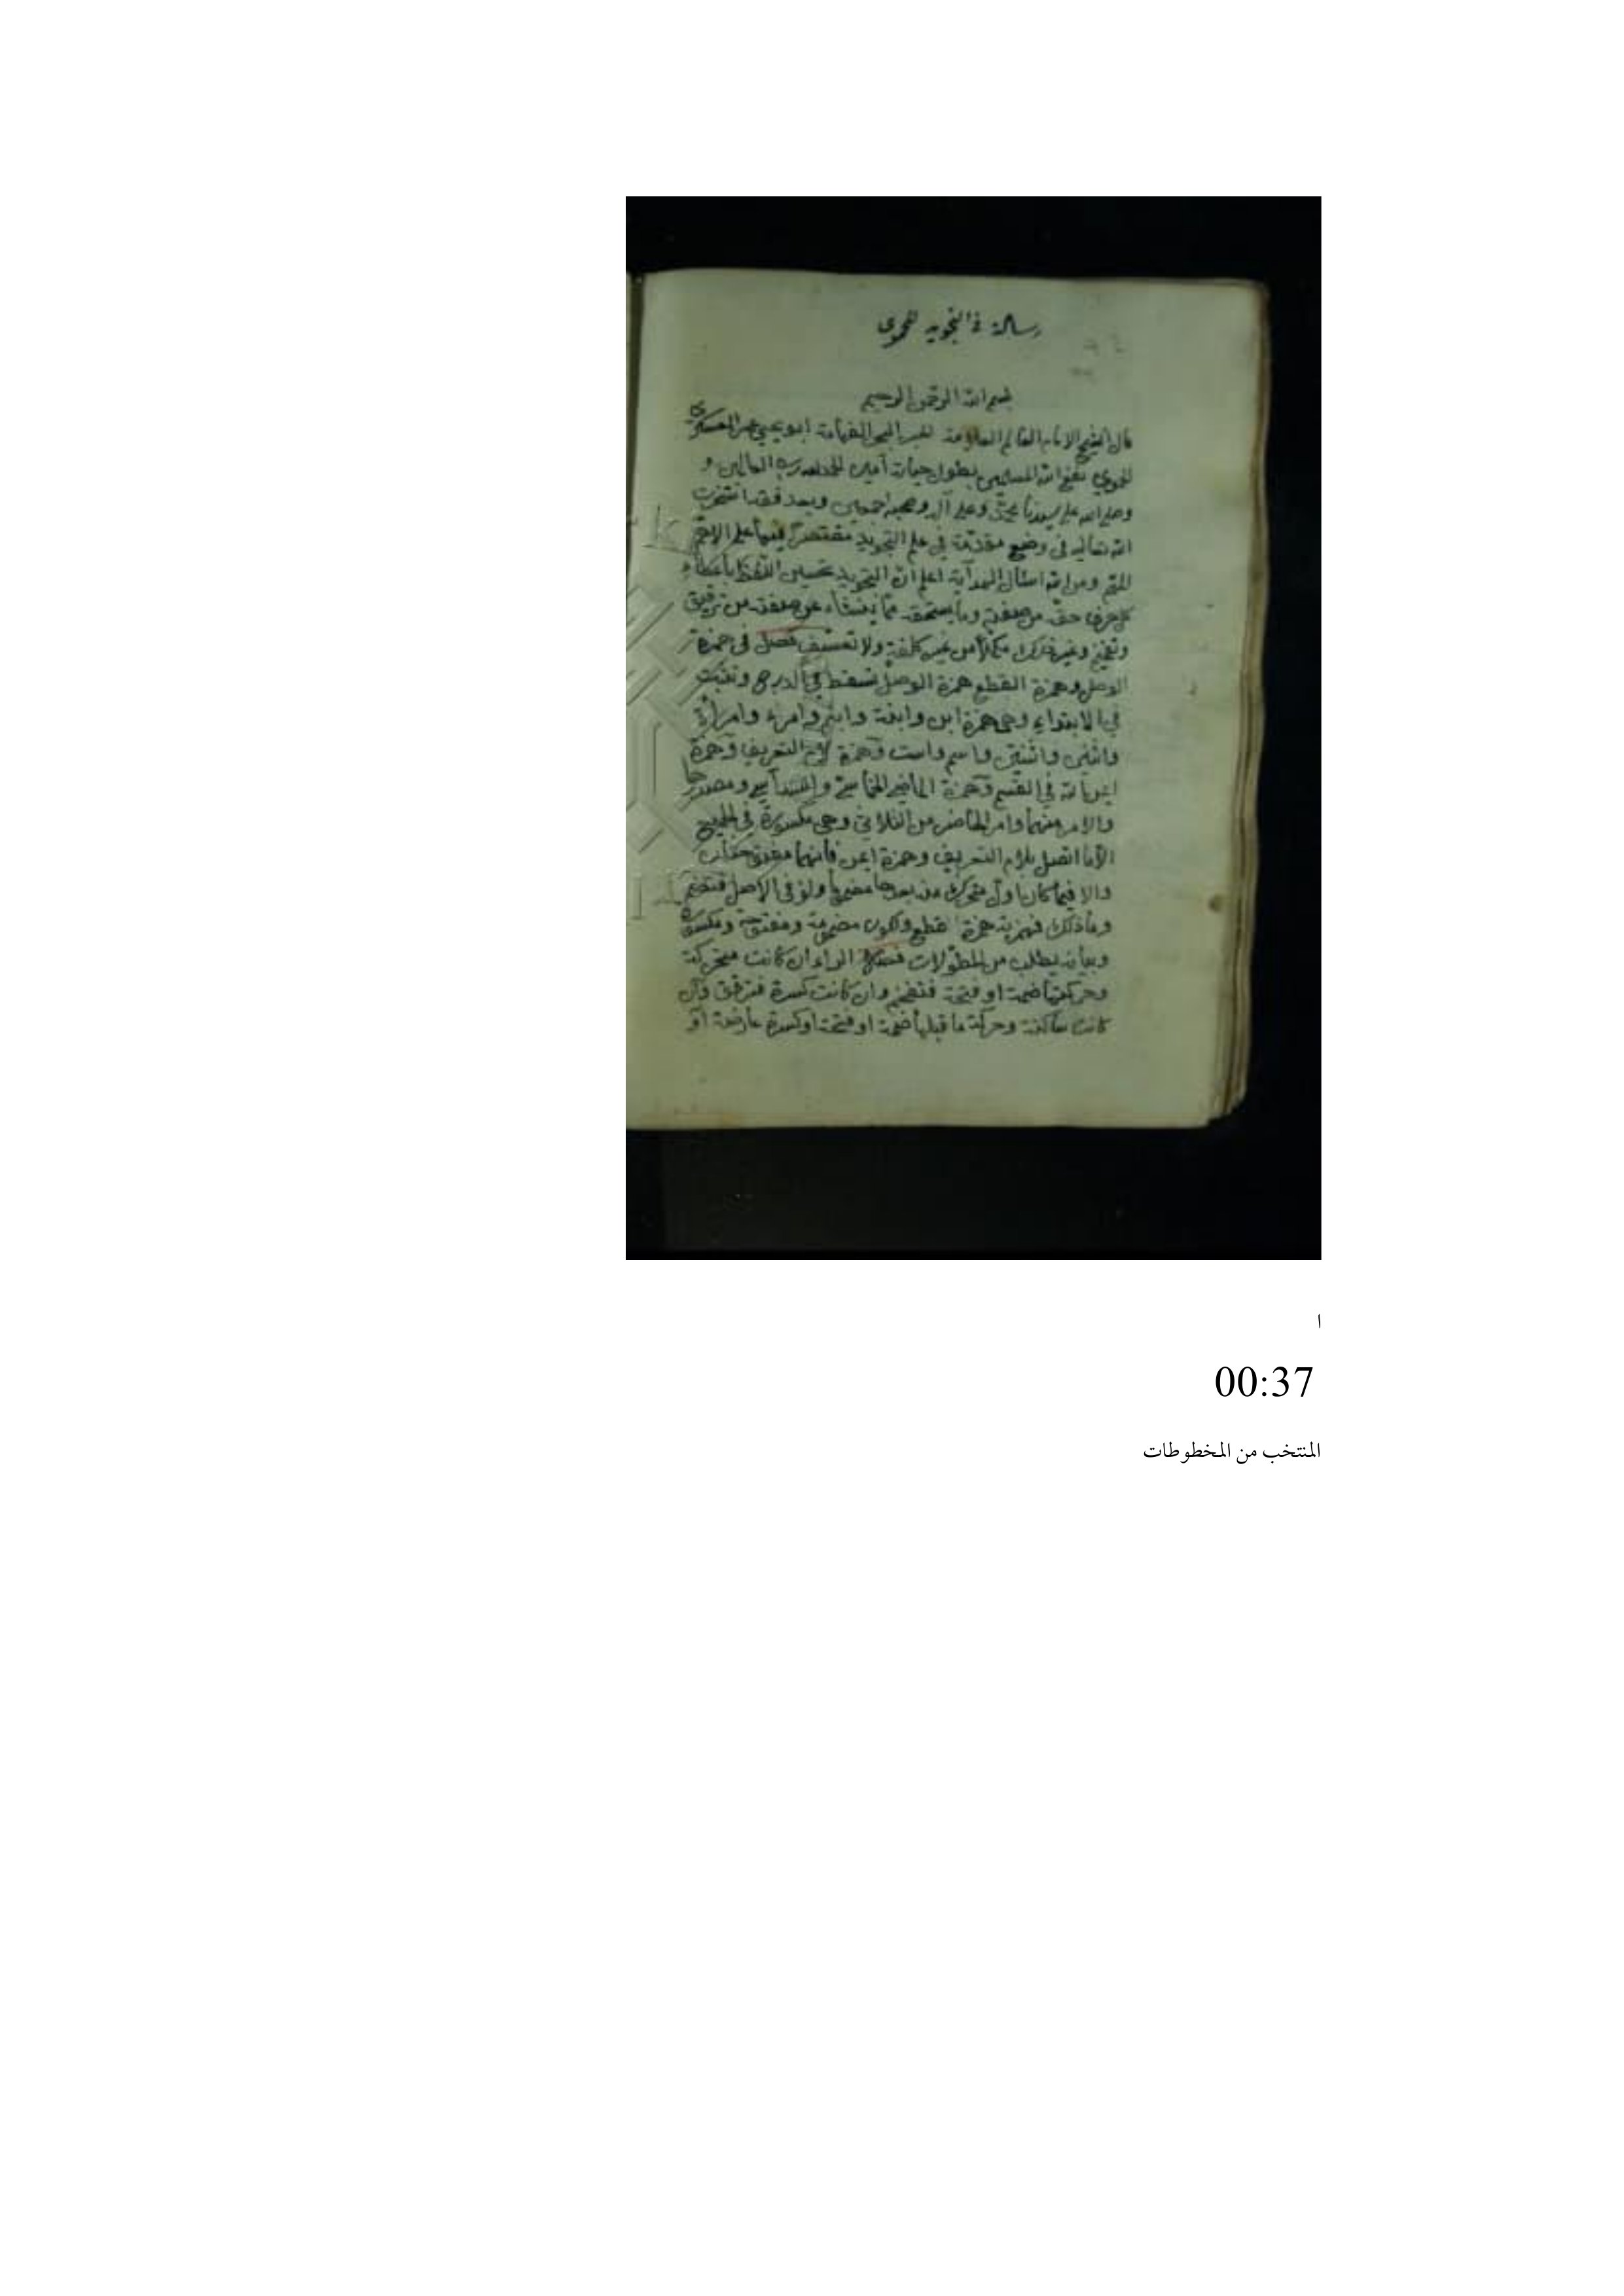 رسالة في التجويد للحموي
بسم الله الرحمن الرحيم
قال الشيخ الامام العالم العلامة الحبر البحر الفهامة ابو يحيى عمر العسكري
الحموي نفع الله المسلمين بطول حياته آمين الحمد لله رب العالمين و
وصلى الله على سيدنا محمد وعلى آله وصحبه اجمعين وبعد فقد استخرت
الله تعالى في وضع مقدمة في علم التجويد مقتصرا فيها على الاهم
ومن الله اسئال الهداية اعلم ان التجويد تحسين التلفظ باعطاء
كل حرف حقه من صفته وما يستحقه مما ينشاء عن صفته من ترقيق
وتفخيم وغير ذلك مكملا من غير كلفة ولا تعسف فصل في همزة
الوصل وهمزة القطع همزة الوصل تسقط في الدرج وتثبت
في الابتداء وهي همزة ابن وابنة وابنم وامرء وامراة
واثنين واثنتين واسم واست وهمزة التعريف وهمزة
ايمن الله في القسم وهمزة الماضي الخماسي والسداسي ومصدرها
والامر منهما وامر الحاضر من الثلاثي وهي مكسورة في الجميع
الا ما اتصل بلام التعريف وهمزة ايمن فانهما مفتوحتان
والا فيما كان اول متحرك من بعدها مضموما ولو في الاصل فتضم
وما ذلك فهمزته همزة قطع وتكون مضمومة ومفتوحة ومكسورة
وبيانه يطلب من المطولات فصل الراء ان كانت متحركة
وحركتها ضمة او فتحة فتفخم وان كانت كسرة فترقق وان
كانت ساكنة وحركة ما قبلها ضمة او فتحة او كسرة عارضة او
ا
00:37
المنتخب من المخطوطات